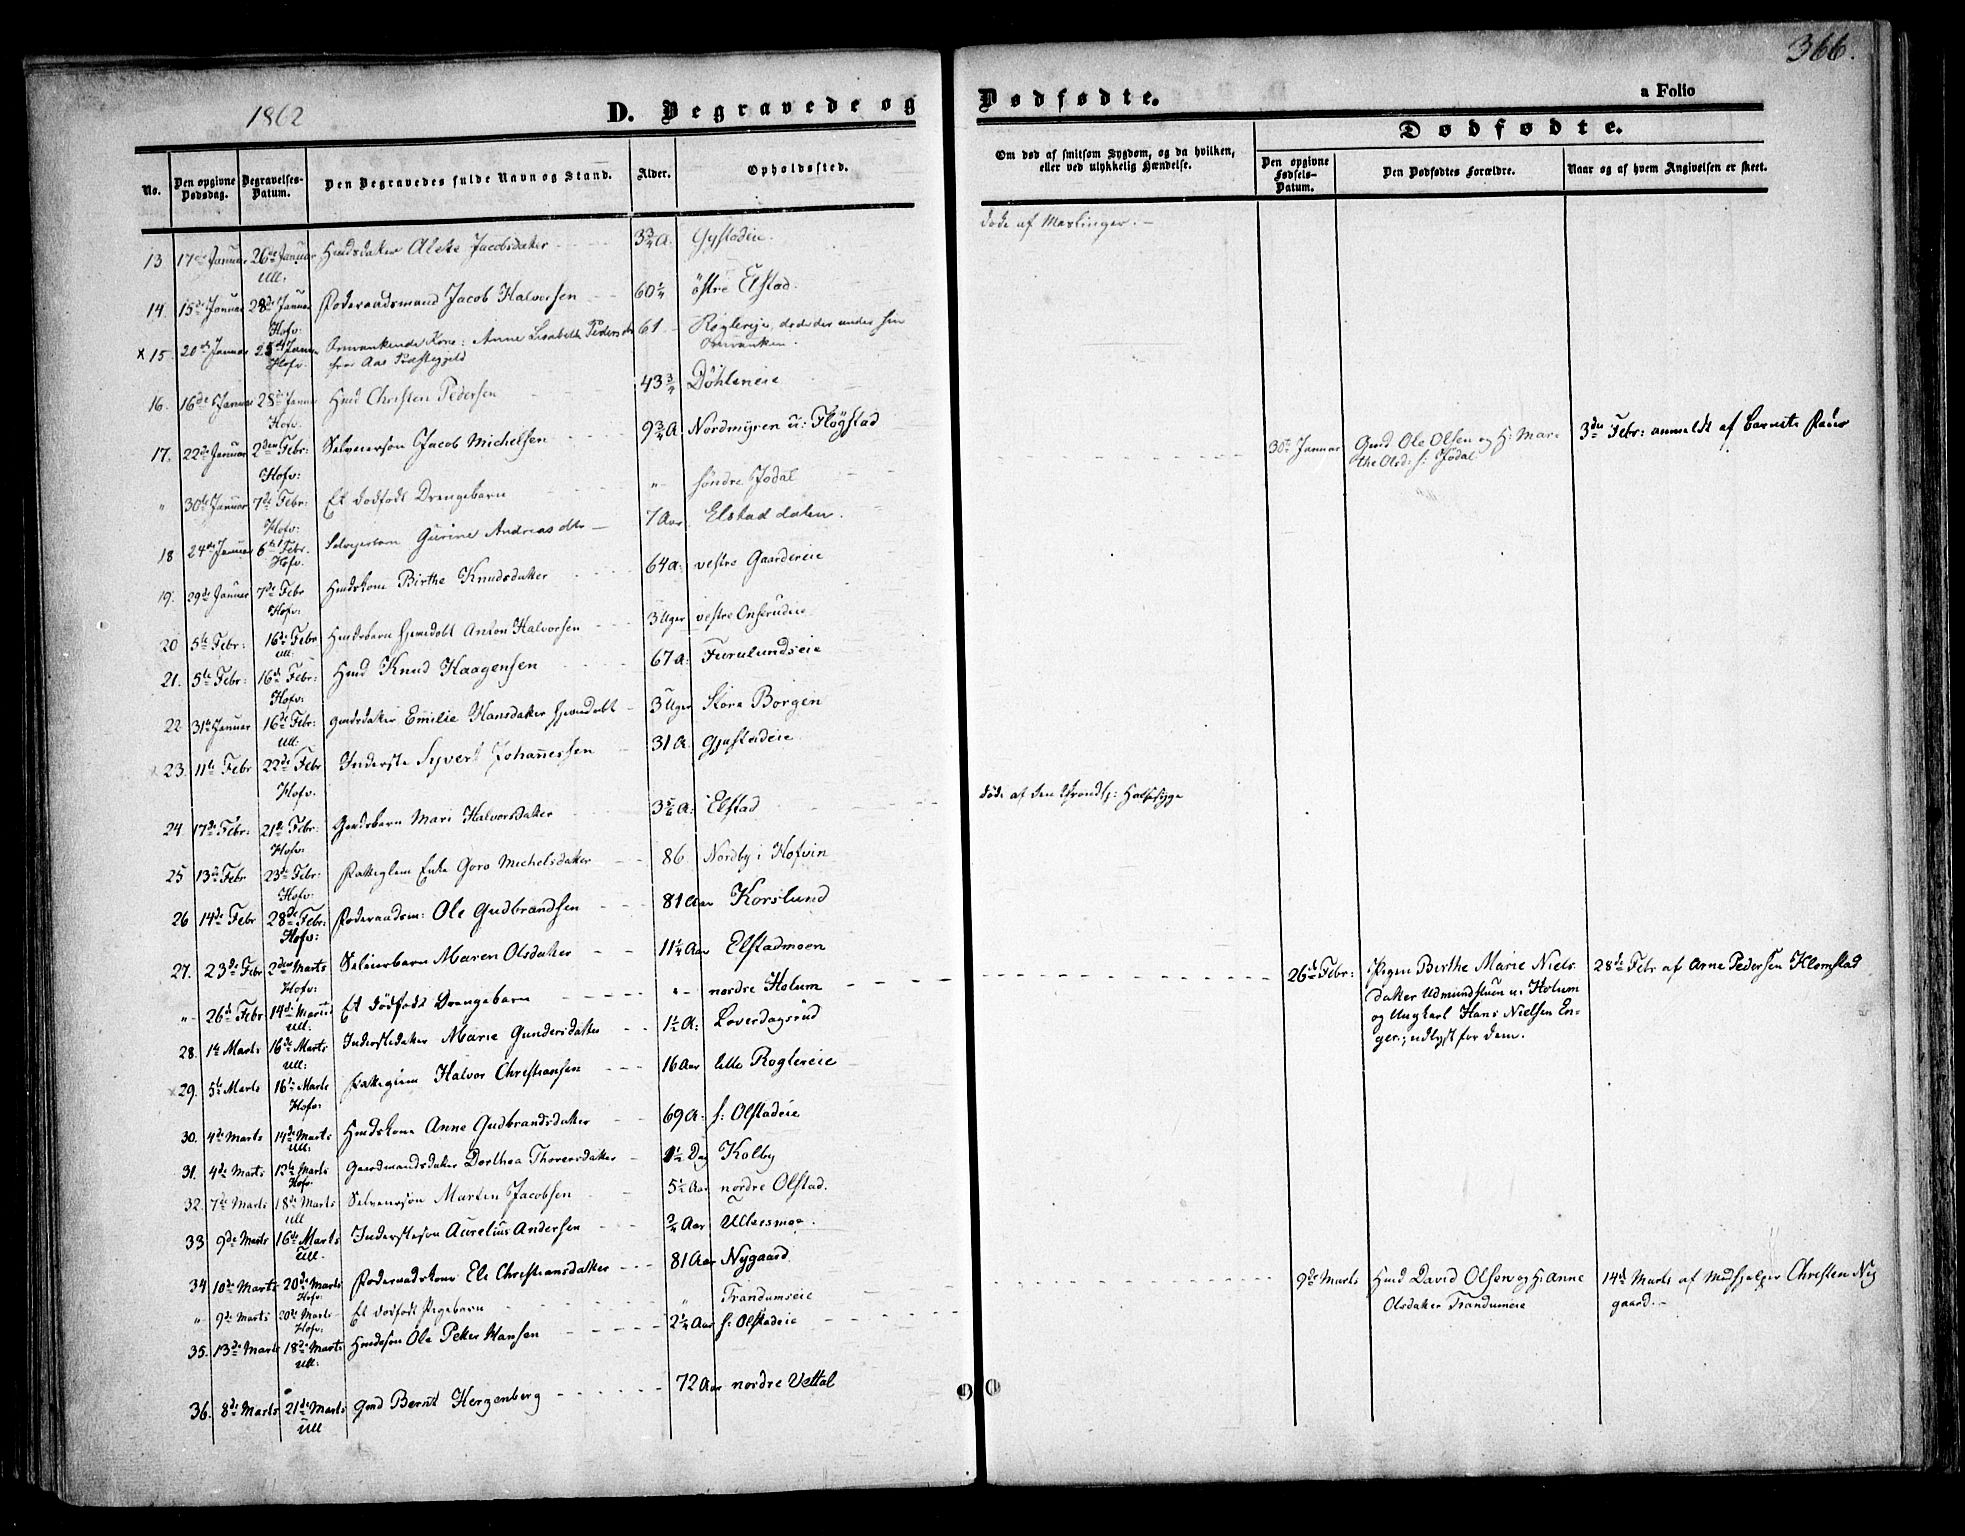 366.
1862
D. Begravede og Dødfødte.
a Folio
No.
Den opgivne Dødsdag.
Begravelses-Datum.
Den Begravedes fulde Navn og Stand.
Alder.
Opholdssted.
Om død af smitsom Sygdom, og da hvilken, eller ved ulykkelig Hændelse.
Dødfødte.
Den opgivne Fødsels-Datum.
Den Dødfødtes Forældre.
Naar og af hvem Angivelsen er skeet.
13 17de Januar 26de Januar Ull: Jacobsdatter 3 3/4 A. Gystadeie. døde af Mæslinger. –
14. 15de Januar 28de Januar Hofv: Føderaadsmand Jacob Halvorsen 60 1/4 östre Elstad.
x 15. 20de Januar Januar Hofv. Omvankende Kone: Anne Lisabeth Pedersdtr 61 – Rögler døde der under sin
fra Aas Præstegjeld Omvanken.
16. 16de Januar 28de Januar Hofv. Huusmd Christen Pedersen 43 3/4 Döhleneie
17. 22de Januar 2den Febr: Hofv: Selveiersön Jacob Michelsen 9 3/4 A Nordmyren u: Flögstad
" 30te Januar 7de Febr: Hofv: Et dödfödt Drengebarn "– söndre Jödal 30te Januar Gmd Ole Olsen og H: Mar- 3die Febr: anmeldt af Barnets Fader
the Olsd: s: Jödal
18 24de Januar 6te Febr. Hofv. Gurine Andreasdtr – 7 Aar Elstaddalen.
19. 29de Januar 7de Febr Hofv: Huusmdskone Birthe Knudsdatter 64 A: vestre Gaardereie
20 5te Febr: 16de Febr Ull: Huusmdsbarn hjemdöbt Anton Halvorsen 3 Uger vestre Onsrudeie
21. 5te Febr: 16de Febr: Hofv: Huusmd Knud Haagensen 67 A: Furulundseie
22 31te Januar 16de Febr: Ull. Gmdsdatter Emilie Hansdatter hjemdöbt – 3 Uger Store Borgen
23. 11te Febr 22de Febr Hofv. Inderste Syvert Johannessen 31 A. Gystadeie.
24 17de Febr: 21de Febr: Hofv: Gmdsbarn Mari Halvorsdatter 3 5/6 A: Elstad døde af den Halssyge
25 13de Febr 23de Febr: Hofv. Fattiglem Enke Goro Michelsdatter 86 Nordby i Hofvin
26 14de Febr 28de Febr: Hofv: Föderaadsm: Ole Gudbrandsen 81 Aar Korslund
27. 23de Febr 2den Marts Hofv: Selveierbarn Maren Olsdatter 11 1/4 Aar Elstadmoen
"– 26de Febr 14de Marts Ull: Et dödfödt Drengebarn "– nordre Holum 26de Febr: Pigen Birthe Marie Niels- 28de Febr af Arne Pedersen Klomstad
datter Udmundstuen u. Holum
og Ungkarl Hans Nielsen En-
ger; udlyst for dem.
28. 1te Marts 16de Marts Ull: Inderstedatter Marie Gundersdatter 1 1/2 A: Loverdagsrud
29. 5te Marts 16de Marts Hofv: Fattiglem Halvor Christiansen 16 Aar lille Roglereie
30. 4de Marts 14de Marts Ull: Huusmdskone Anne Gudbrandsdatter 69 A: s: Olstadeie
31. 4de Marts 13te Marts Hofv. Gaardmandsdatter Dorthea Thorersdatter 1 1/2 Dag Kolby
32. 7de Marts 18de Marts Ull Selveiersön Martin Jacobsen 5 1/2 Aar nordre Olstad.
33 9de Marts 16de Marts Ull. Inderstesön Aurelius Andersen 3/4 Aar Ullersmoe.
34 10de Marts 20de Marts Hofv. Föderaadskone Eli Christiansdatter 81 Aar Nygaard
" 9de Marts 20de Marts Hofv: Et dödfödt Pigebarn " Trandumseie 9de Marts Huusmd David Olsen og H: Anne 14de Marts af Medhjelper Christen Ny-
Olsdatter Trandumeie gaard. –
35. 13de Marts 18de Marts Ull: Huusmdssön Ole Petter Hansen 2 1/4 Aar s: Olstadeie
36. 8de Marts 21de Marts Ull Gmd Bernt Hergenberg 72 Aar nordre Vettal